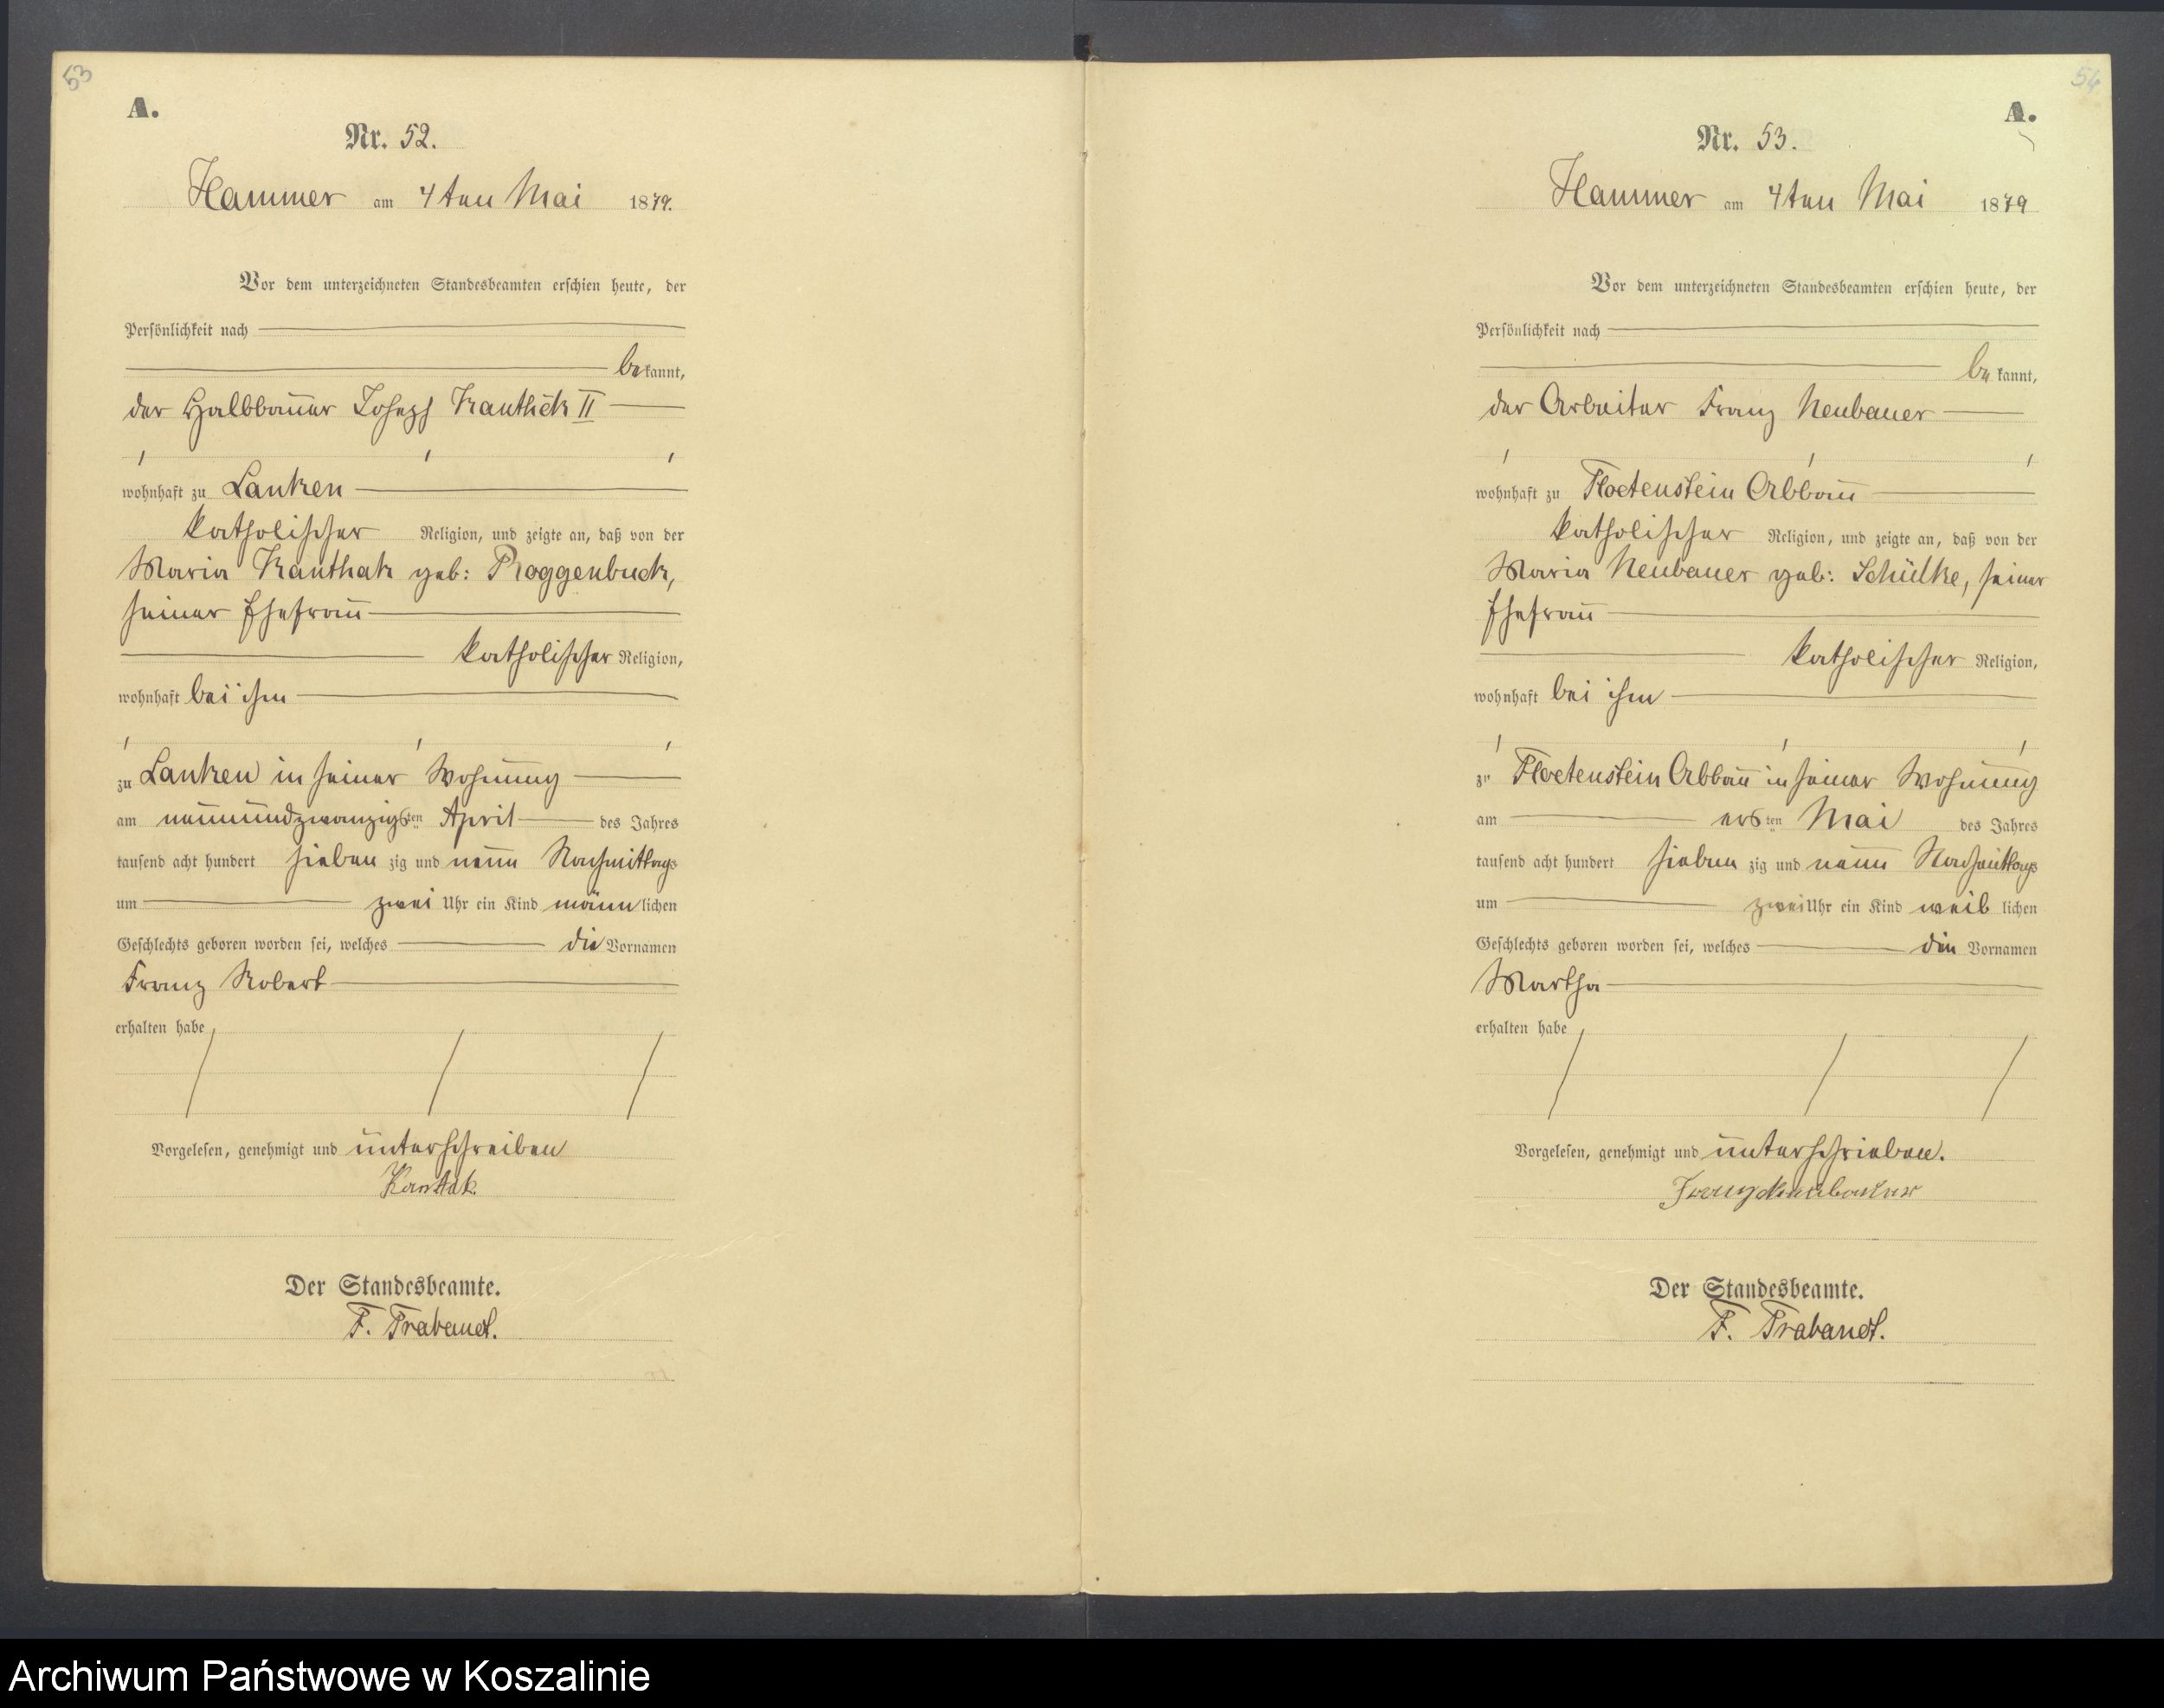 53
A.
Nr. 52.
Hammer am 4ten Mai 1879.
Vor dem unterzeichneten Standesbeamten erschien heute, der
Persönlichkeit nach
bekannt,
der Halbbauer Joseph II
wohnhaft zu Lanken
katholischer Religion, und zeigte an, daß von der
Maria Kanthak geb: Roggenbuck,
seiner Ehefrau
katholischer Religion,
wohnhaft bei ihm
zu Lanken in seiner Wohnung
am neunundzwanzigsten April des Jahres
tausend acht hundert siebenzig und neun Nachmittags
um zwei Uhr ein Kind männlichen
Geschlechts geboren worden sei, welches die Vornamen
Franz Robert
erhalten habe
Vorgelesen, genehmigt und unterschreiben
Kantak
Der Standesbeamte.
F. Trabandt.
54
A.
Nr. 53.
Hammer am 4ten Mai 1879
Vor dem unterzeichneten Standesbeamten erschien heute, der
Persönlichkeit nach
bekannt,
der Arbeiter Franz Neubauer
wohnhaft zu Floetenstein Abbau
katholischer Religion, und zeigte an, daß von der
Maria Neubauer geb: Schülke, seiner
Ehefrau
katholischer Religion,
wohnhaft bei ihm
zu Floetenstein Abbau in seiner Wohnung
am ersten Mai des Jahres
tausend acht hundert siebenzig und neun Nachmittags
um zwei Uhr ein Kind weiblichen
Geschlechts geboren worden sei, welches den Vornamen
Martha
erhalten habe
Vorgelesen, genehmigt und unterschrieben.
Franz
Der Standesbeamte.
F. Trabandt.
Archiwum Państwowe w Koszalinie